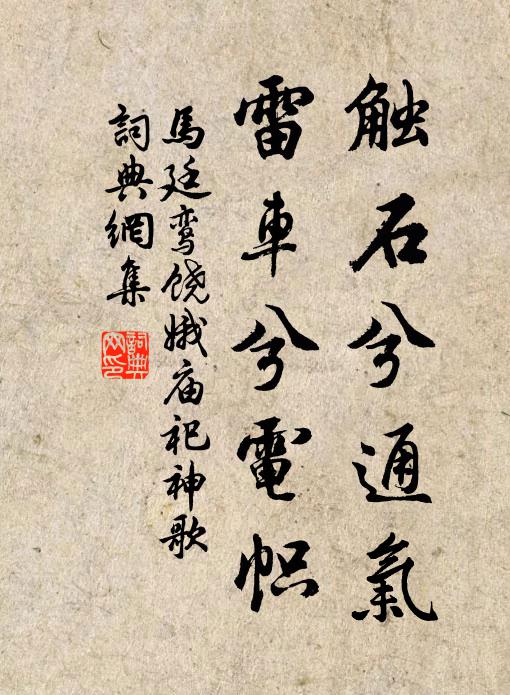 触石兮通氣
雷車兮電帜
馬廷鸾饶娥庙祀神歌
詞典網集
詞典網印